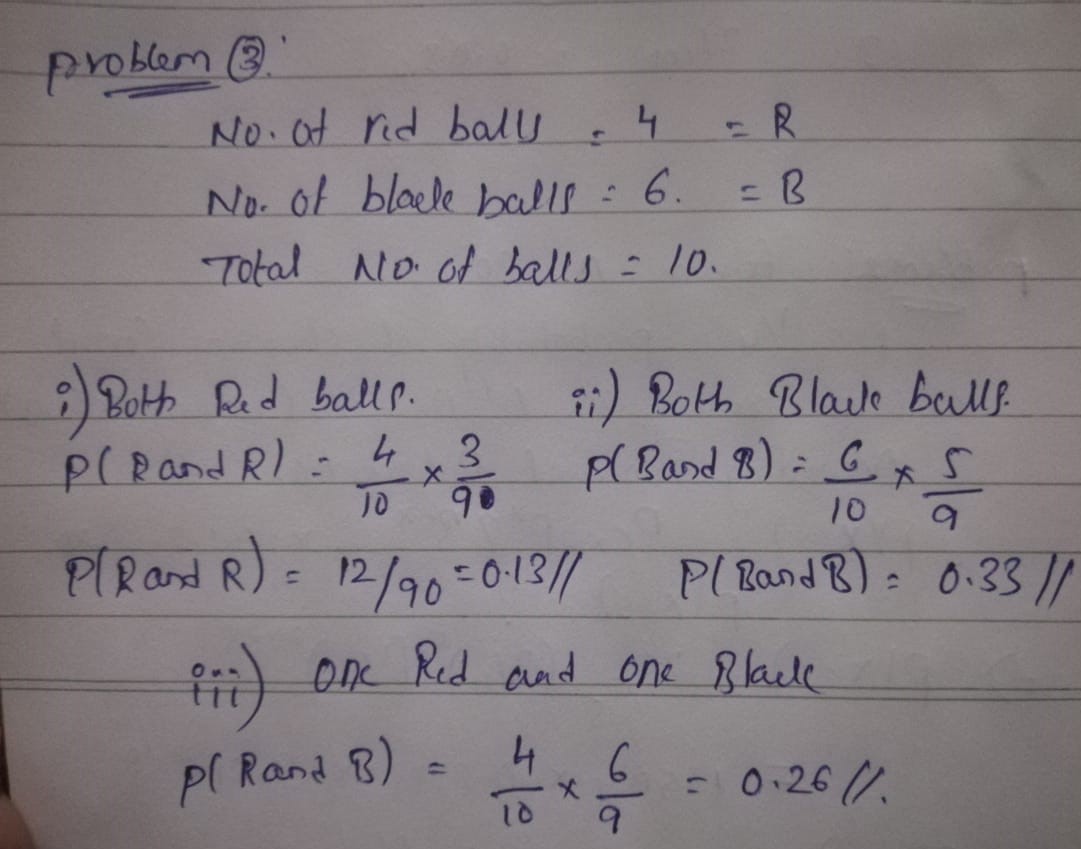 problem ③:
No. of red balls = 4 = R
No. of black balls = 6. = B
Total No. of balls = 10.
i) Both Red balls.
P(R and R) = 4/10 × 3/9
P(R and R) = 12/90 = 0.13//
ii) Both Black balls.
P(B and B) = 6/10 × 5/9
P(B and B) = 0.33//
iii) One Red and one Black
P(R and B) = 4/10 × 6/9 = 0.26//.